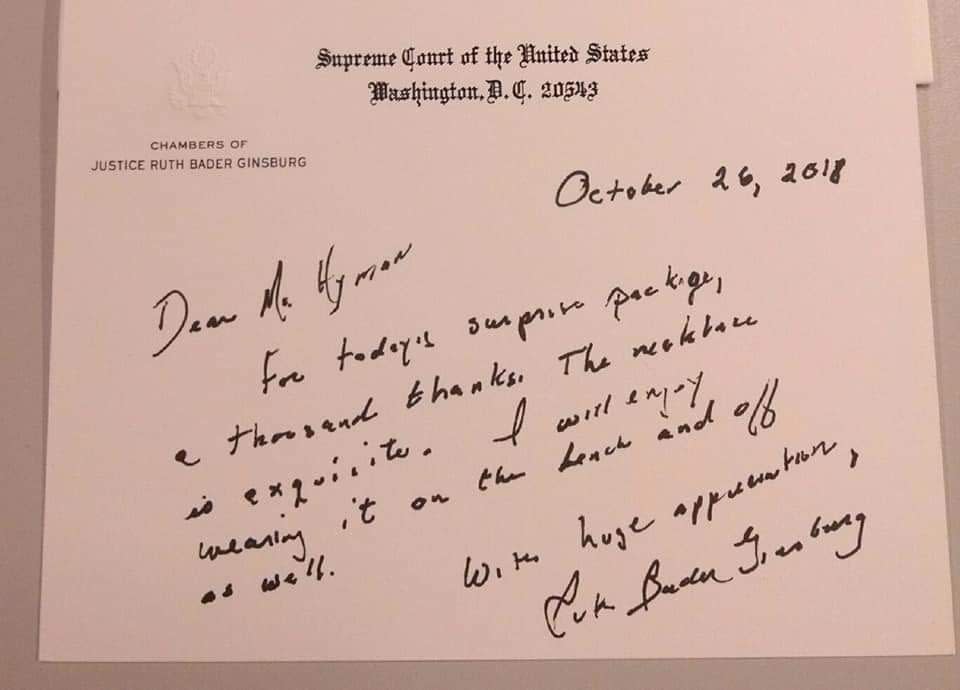 Supreme Court of the United States
Washington, D. C. 20543
CHAMBERS OF
JUSTICE RUTH BADER GINSBURG
October 26, 2018
Dear Ms. Hyman
For today's surprise package,
a thousand thanks. The necklace
is exquisite. I will enjoy
wearing it on the bench and off
as well.
With huge appreciation,
Ruth Bader Ginsburg